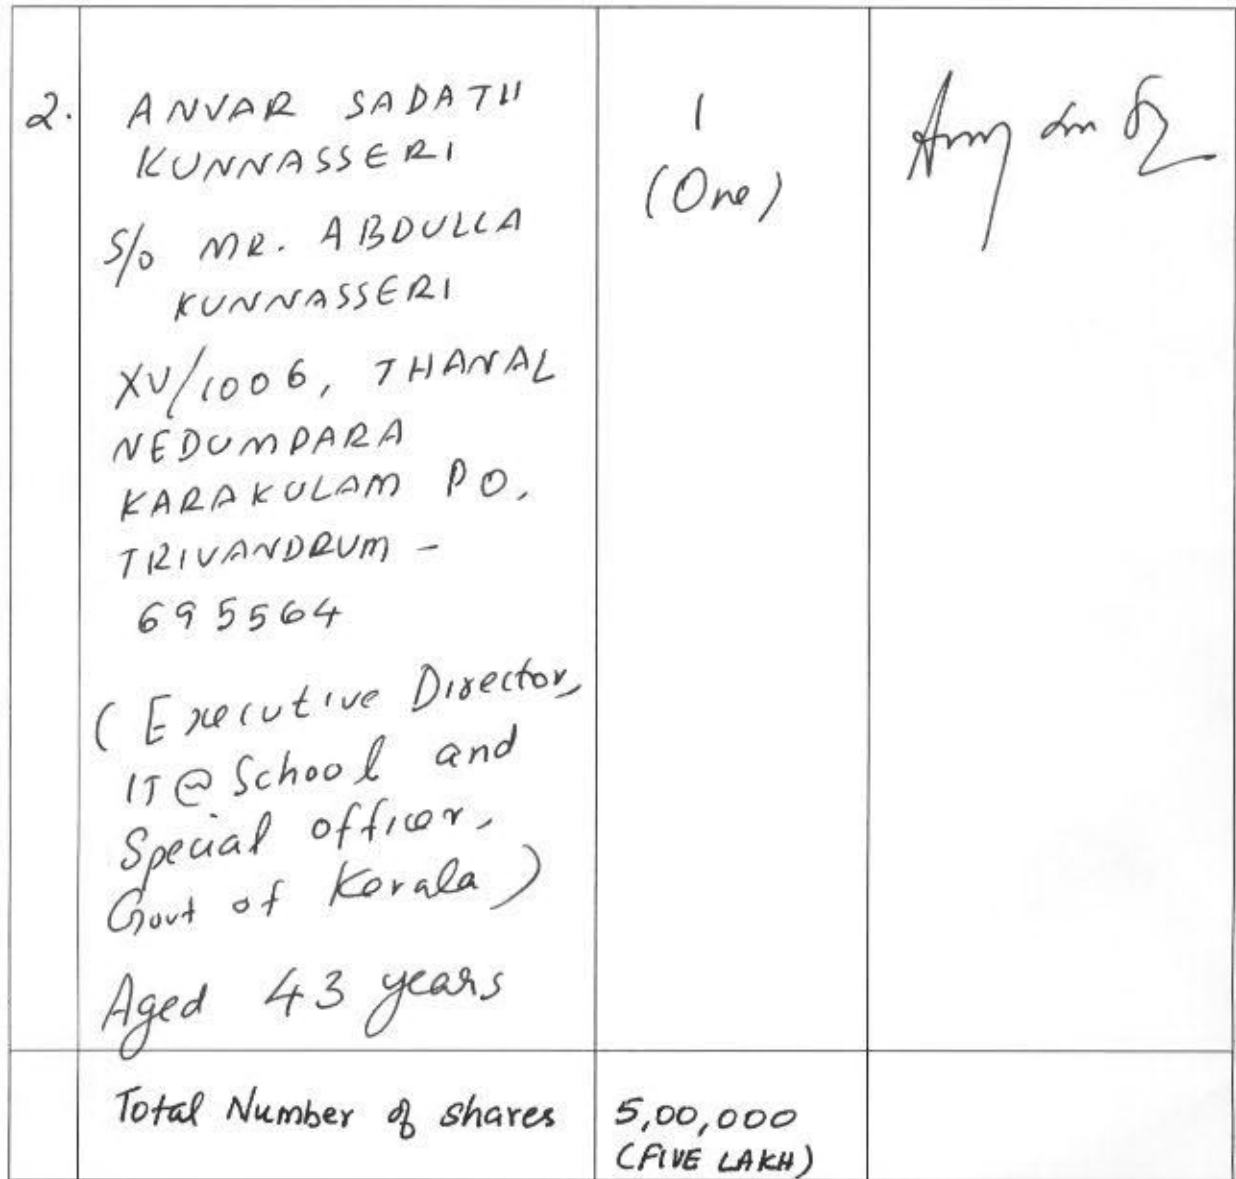 2.
ANVAR SADATH
KUNNASSERI
S/O MR. ABDULLA
KUNNASSERI
XV/1006, THANAL
NEDUMPARA
KARAKULAM PO,
TRIVANDRUM -
695564
(Executive Director,
IT@School and
Special officer,
Govt of Kerala)
Aged 43 years
1
(One)
Total Number of shares
5,00,000
(FIVE LAKH)